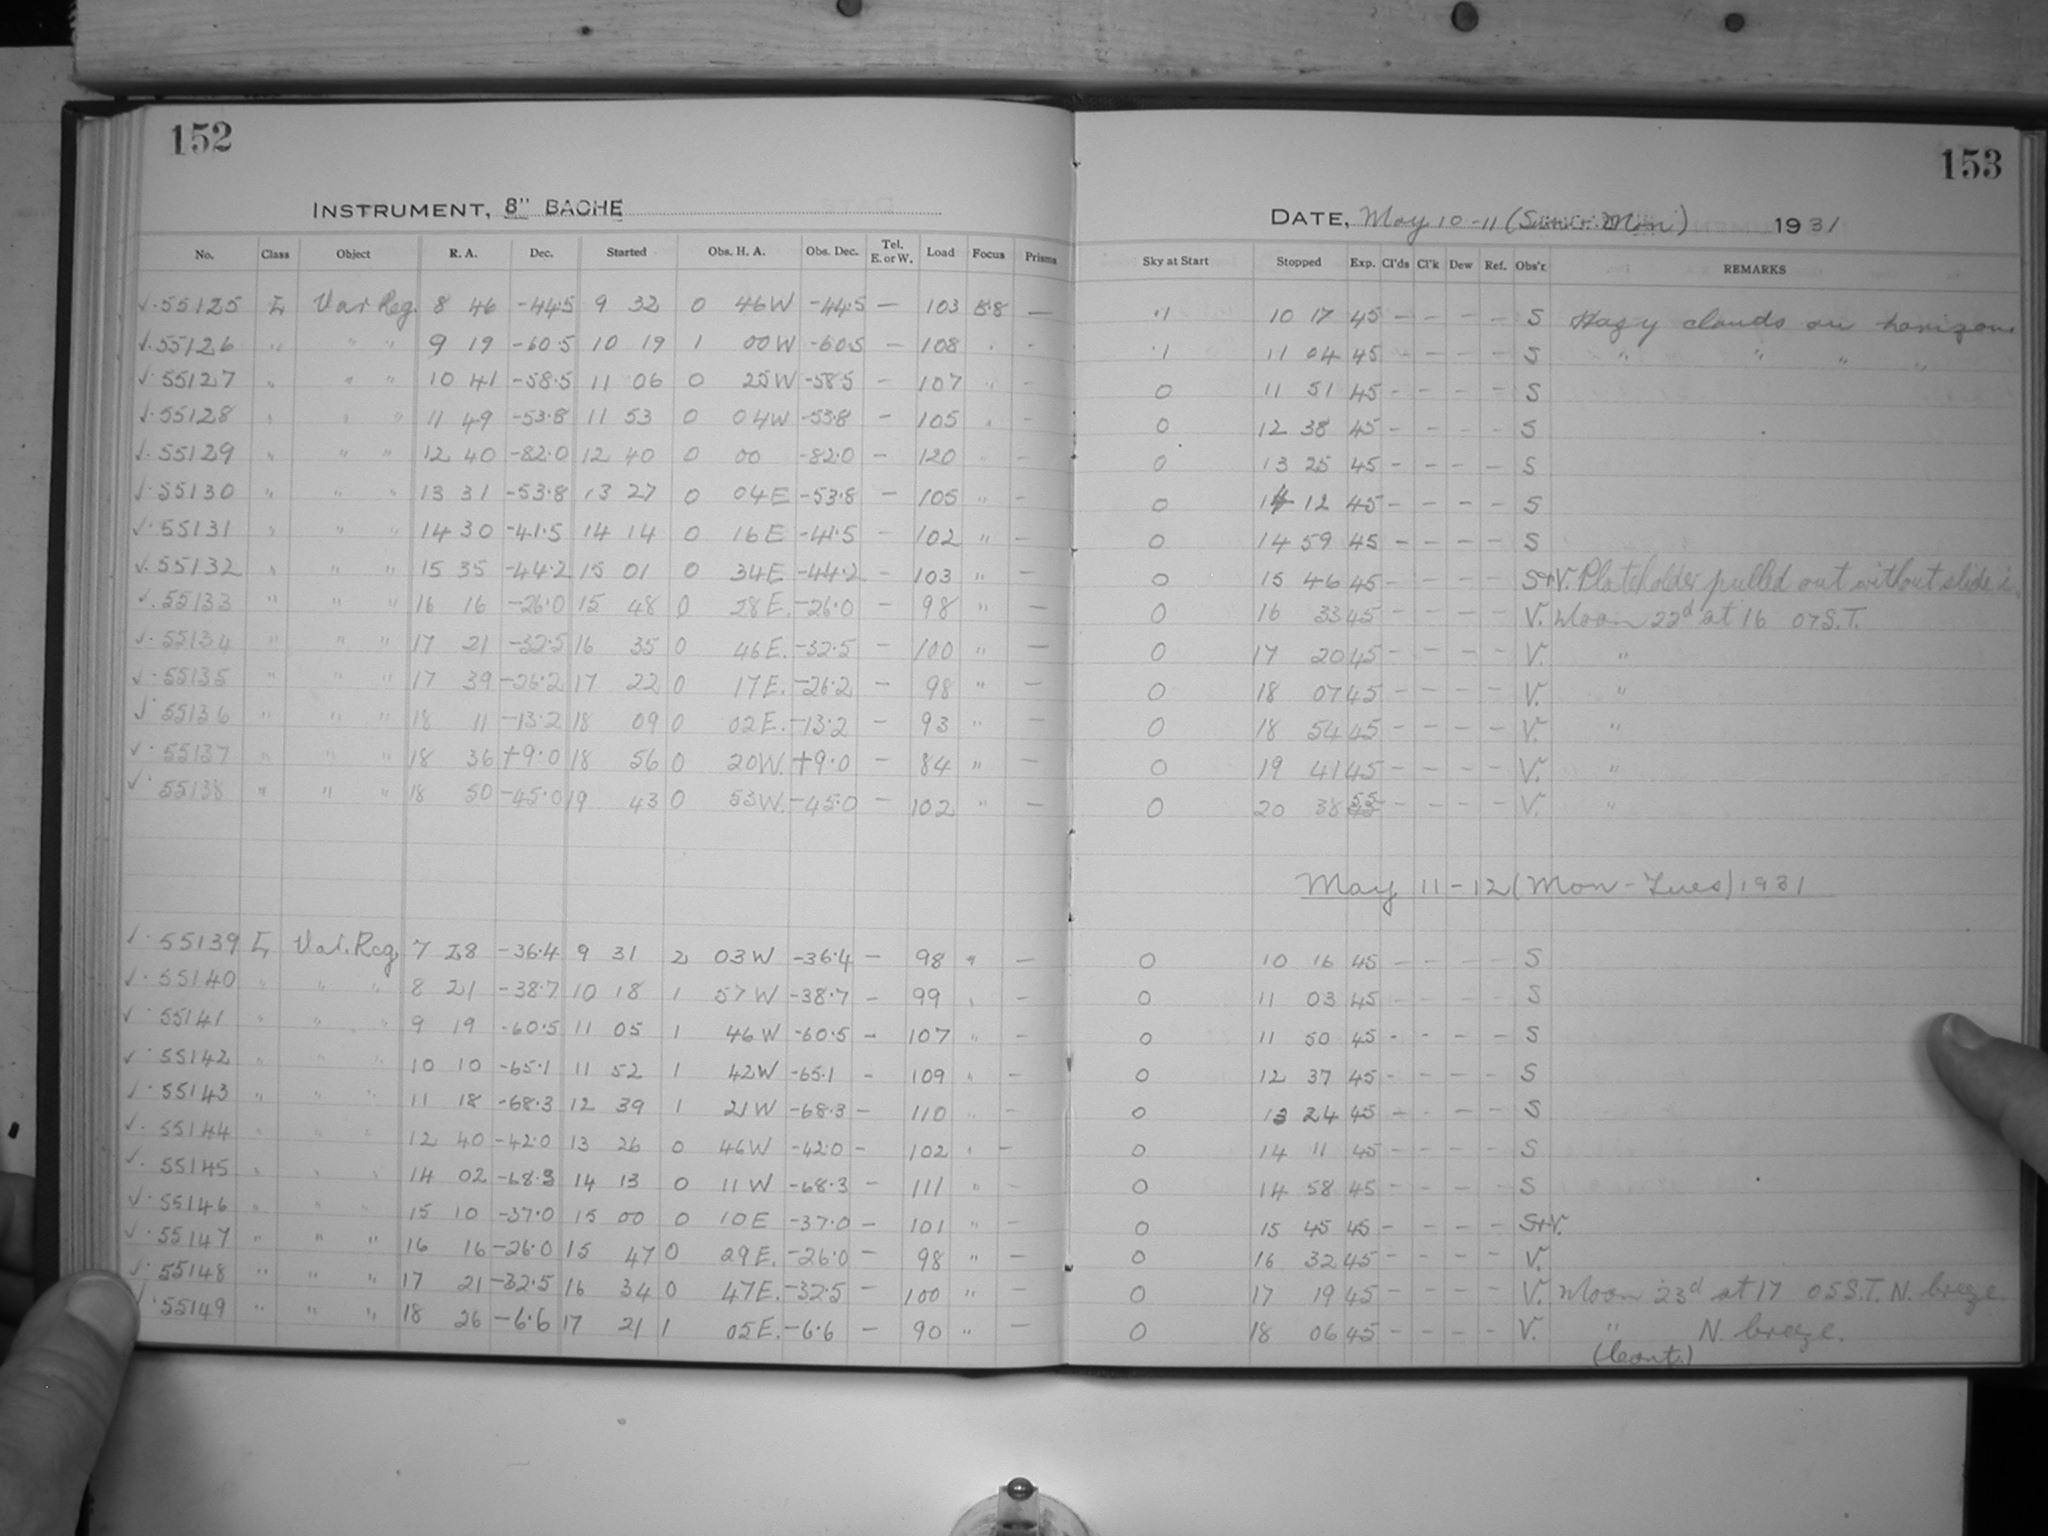 152
INSTRUMENT, 8" BACHE
No. Class Object R. A. Dec. Started Obs. H. A. Obs. Dec. Tel. E. or W. Load Focus Prisms
√·55125 L Var Reg. 8 46 -44.5 9 32 0 46W -44.5 — 103 5.8 —
√·55126 " " " 9 19 -60.5 10 19 1 00W -60.5 — 108 " -
√·55127 " " " 10 41 -58.5 11 06 0 25W -58.5 — 107 " -
√·55128 " " " 11 49 -53.8 11 53 0 04W -53.8 — 105 " -
√·55129 " " " 12 40 -82.0 12 40 0 00 -82.0 — 120 " -
√·55130 " " " 13 31 -53.8 13 27 0 04E -53.8 — 105 " -
√·55131 " " " 14 30 -41.5 14 14 0 16E -41.5 — 102 " —
√·55132 " " " 15 35 -44.2 15 01 0 34E -44.2 — 103 " —
√·55133 " " " 16 16 -26.0 15 48 0 28E. -26.0 — 98 " —
√·55134 " " " 17 21 -32.5 16 35 0 46E. -32.5 — 100 " —
√·55135 " " " 17 39 -26.2 17 22 0 17E. -26.2 — 98 " —
√·55136 " " " 18 11 -13.2 18 09 0 02E. -13.2 — 93 " —
√·55137 " " " 18 36 +9.0 18 56 0 20W. +9.0 — 84 " —
√·55138 " " " 18 50 -45.0 19 43 0 53W. -45.0 — 102 " —
√·55139 L Var. Reg 7 28 -36.4 9 31 2 03W -36.4 — 98 " —
√·55140 " " " 8 21 -38.7 10 18 1 57W -38.7 — 99 " —
√·55141 " " " 9 19 -60.5 11 05 1 46W -60.5 — 107 " —
√·55142 " " 10 10 -65.1 11 52 1 42W -65.1 - 109 " —
√·55143 " " " 11 18 -68.3 12 39 1 21W -68.3 — 110 " —
√·55144 " " " 12 40 -42.0 13 26 0 46W -42.0 — 102 " —
√·55145 " " " 14 02 -68.3 14 13 0 11W -68.3 — 111 " —
√·55146 " " " 15 10 -37.0 15 00 0 10E -37.0 — 101 " —
√·55147 " " " 16 16 -26.0 15 47 0 29E. -26.0 — 98 " —
√·55148 " " " 17 21 -32.5 16 34 0 47E. -32.5 — 100 " —
√·55149 " " " 18 26 -6.6 17 21 1 05E. -6.6 — 90 " —
153
DATE, May 10-11 (Sun-Mon) 1931
Sky at Start Stopped Exp. Cl'ds Cl'k Dew Ref. Obs'r. REMARKS
·1 10 17 45 — — — — S Hazy clouds on horizon
·1 11 04 45 - — — — S " " " "
0 11 51 45 - — — — S
0 12 38 45 - — — — S
0 13 25 45 — — — — S
0 14 12 45 — — — — S
0 14 59 45 — — — — S
0 15 46 45 — — — — S+V. Plateholder pulled out without slide in
0 16 33 45 — — — — V. Moon 22d at 16 07 S.T.
0 17 20 45 — — — — V. "
0 18 07 45 — — — — V. "
0 18 54 45 — — — — V. "
0 19 41 45 — — — — V. "
0 20 38 55 — — — — V. "
May 11-12 (Mon-Tues) 1931
0 10 16 45 — — — — S
0 11 03 45 - — — — S
0 11 50 45 - — — — S
0 12 37 45 — — — — S
0 13 24 45 — — — — S
0 14 11 45 — — — — S
0 14 58 45 — — — — S
0 15 45 45 — — — — S+V.
0 16 32 45 — — — — V.
0 17 19 45 — — — — V. Moon 23d at 17 05 S.T. N. breeze.
0 18 06 45 — — — — V. " N. breeze.
(Cont.)